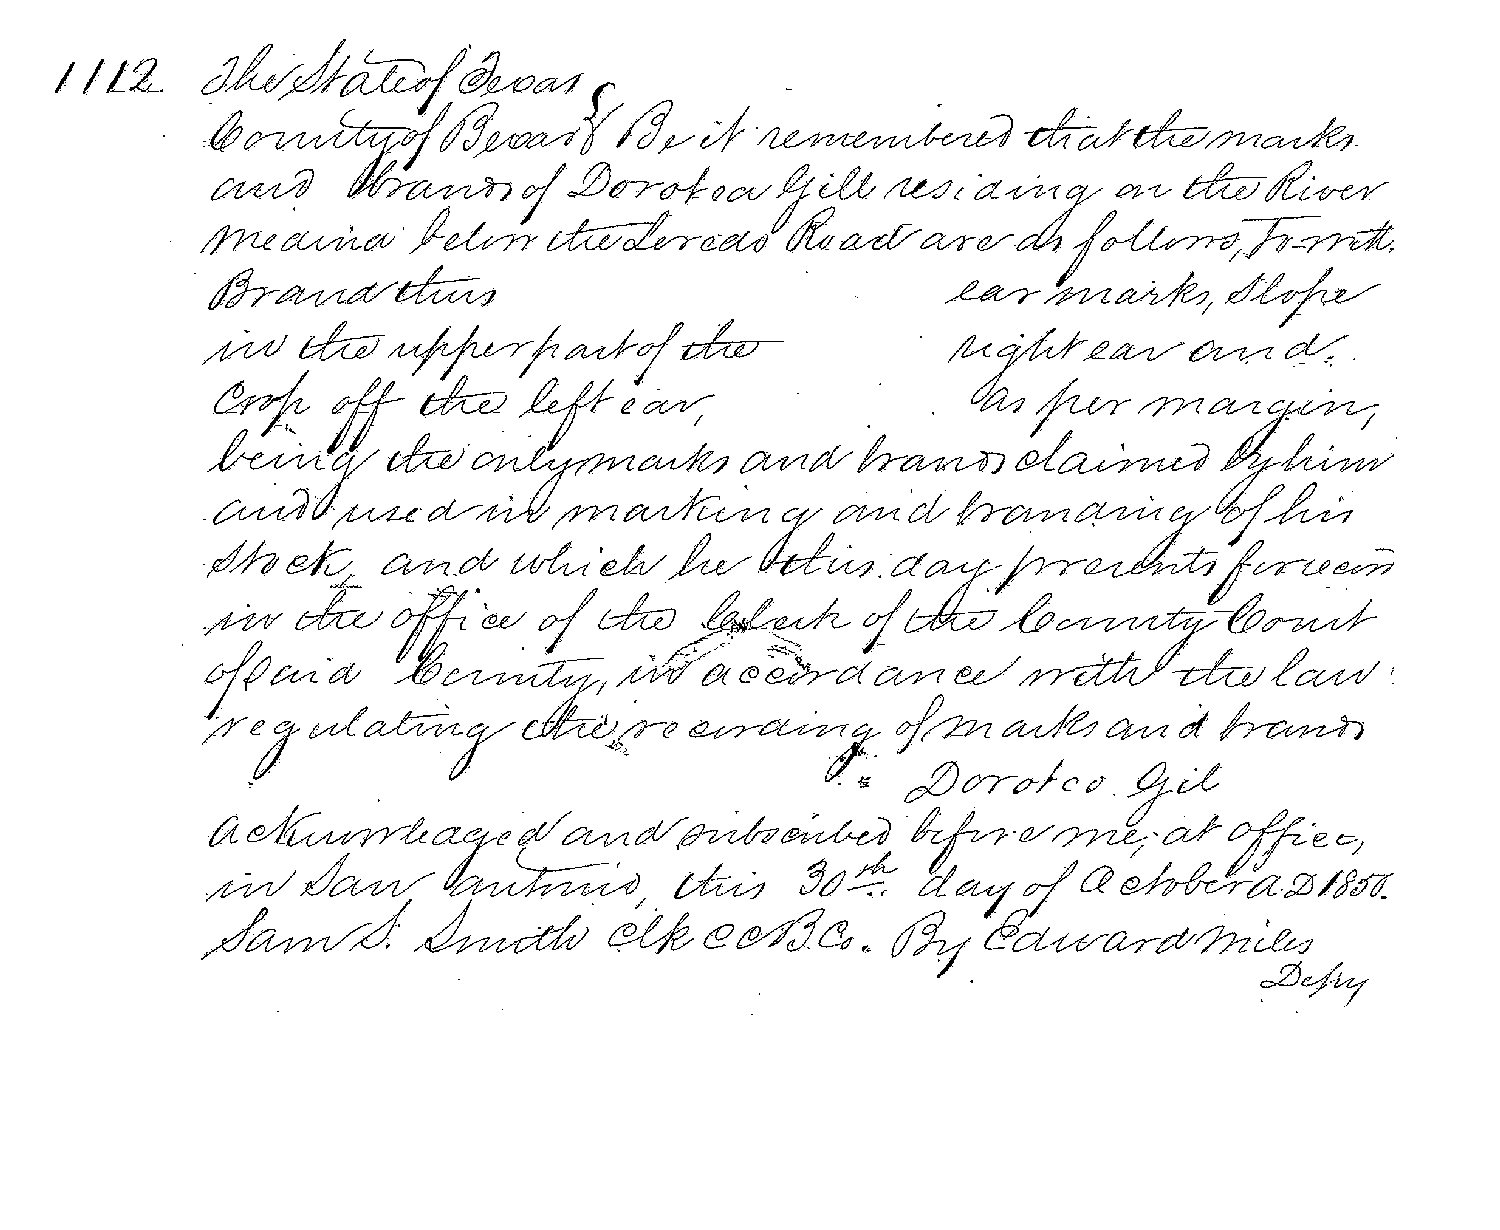 1112. The State of Texas
County of Bexar } Be it remembered that the marks
and brands of Dorotea Gill residing on the River
Medina below the Loredo Road are as follows, To-witt.
Brand thus ear marks, Slope
in the upper part of the right ear and
Crop off the left ear, as per margin,
being the only marks and brands claimed by him
and used in marking and branding of his
Stock, and which he this day presents for record
in the office of the Clerk of the County Court
of said County, in accordance with the law
regulating the recording of marks and brands
Doroteo Gil
Acknowledged and subscribed before me, at office,
in San Antonio, this 30th day of October A.D 1850.
Sam S. Smith Clk C C B. Co. By Edward Miles
Depy